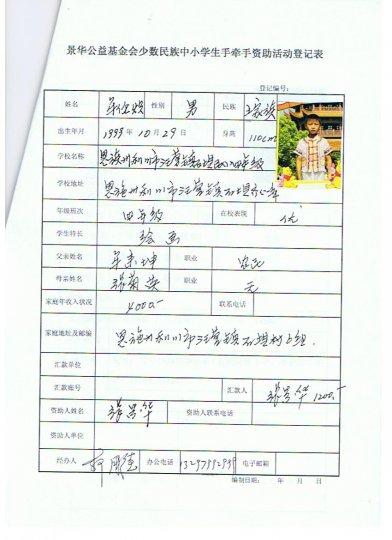 景华公益基金会少数民族中小学生手牵手资助活动登记表
登记编号:
姓名 性别 男 民族 土家族
出生年月 1999年10月29日 身高 110cm
学校名称 恩施州利川市汪营镇石坝
学校地址 恩施州利川市汪营镇石坝
年级班次 四年级 在校表现 优
学生特长 绘画
父亲姓名 坤 职业 农民
母亲姓名 张菊英 职业 无
家庭年收入状况 4000.- 联系电话
家庭地址及邮编 恩施州利川市汪营镇石坝村6组.
汇款单位
汇款账号 汇款人 张景华 1200.-
资助人姓名 张景华 资助人联系电话
资助人单位
经办人 办公电话 电子邮箱
编制日期: 年 月 日